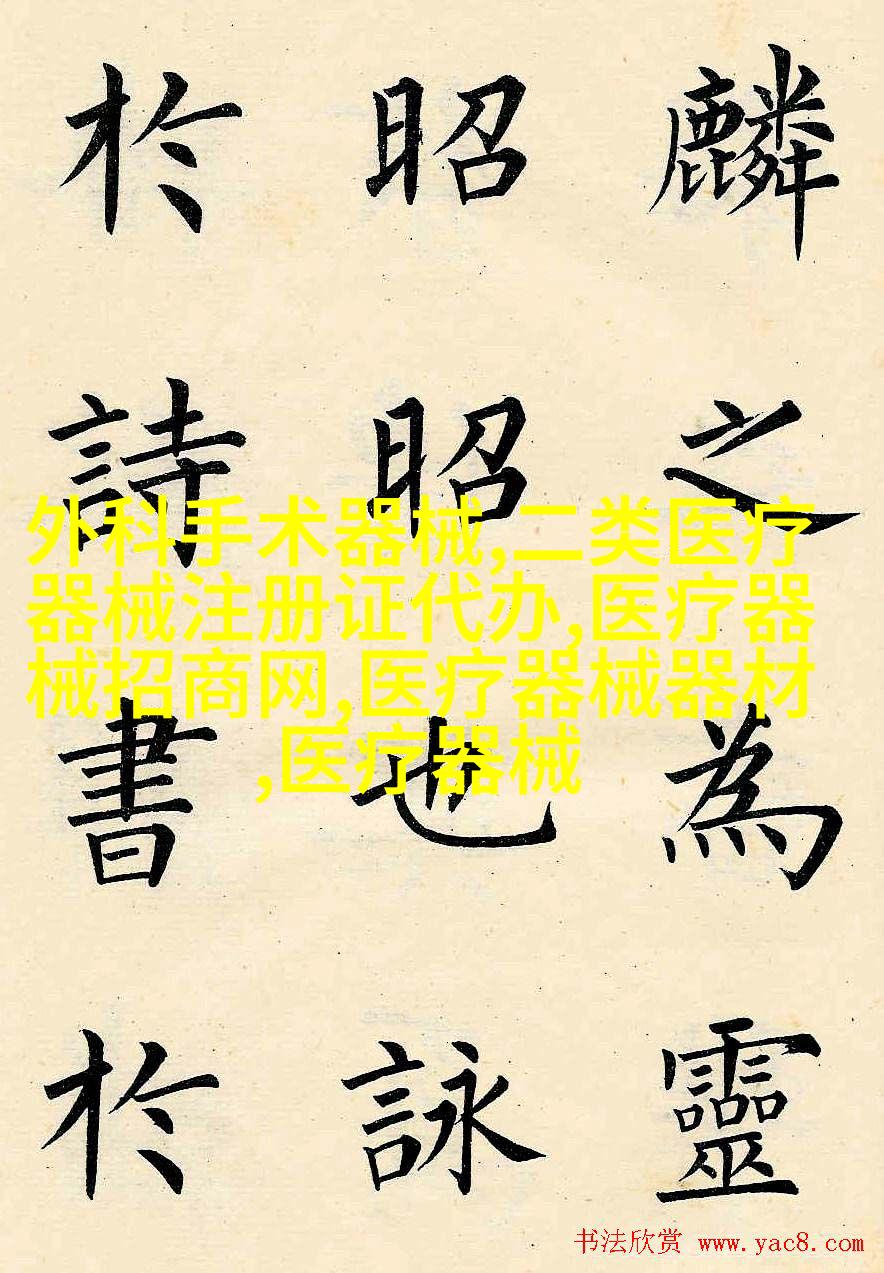 麟之為靈
昭昭也詠
於詩書於
外科手术器械,二类医疗
器械注册证代办,医疗器
械招商网,医疗器械器材
,医疗器械
书法欣赏 www.yac8.com